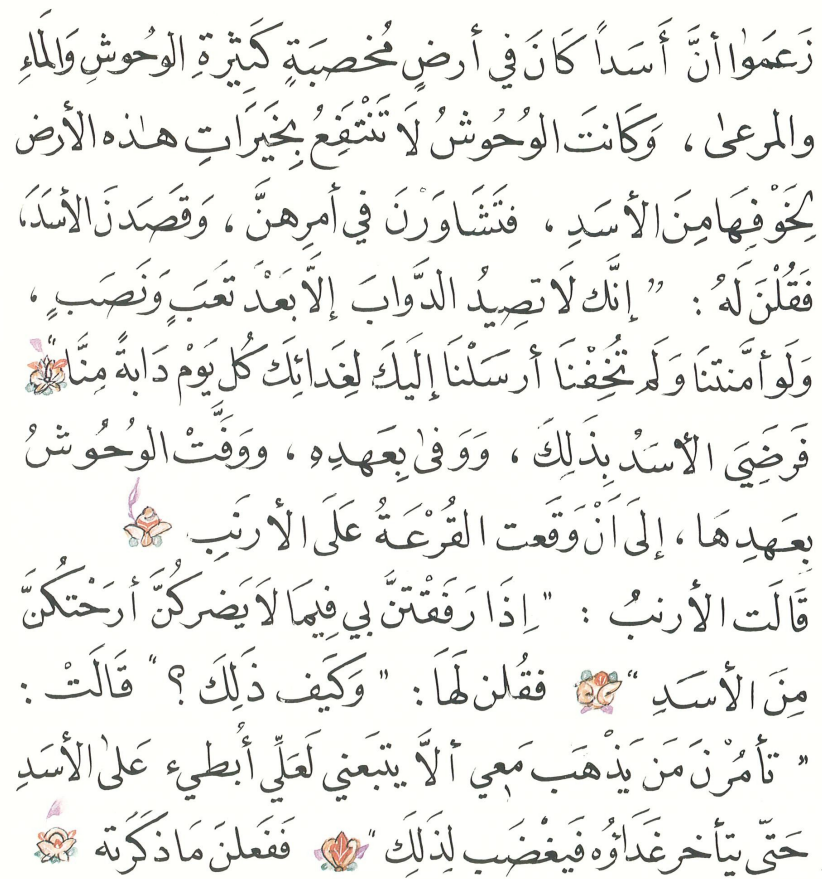 زَعَمَوا أنَّ أَسَداً كَانَ في أرضٍ مُخصبَةٍ كَثِيْرةِ الوُحُوشِ وَالَماءِ
والمرعىٰ ، وَكَانتَ الوُحُوشُ لَا تَنْتَفِعُ بِخَيرَاتِ هـٰذه الأرض
بِخَوْفِهَا مِنَ الأسَدِ ، فتَشَاوَرْنَ في أمرِهنَّ ، وَقَصَدنَ الأسَدَ،
فَقُلْنَ لَهُ : " إنَّك لَا تصِيدُ الدَّوابَ إلَّا بَعْدَ تَعَبٍ وَنَصَبٍ ،
وَلَو أمَّنتنَا وَلَم تُخِفْنَا أرسَلْنَا إلَيكَ لِغَدائِك كُل يَوْم دَابةً مِنَّا "
فَرَضِيَ الأسَدُ بِذَلِكَ ، وَوَفىٰ بِعَهدِهِ ، ووَفَّتْ الوُحُوشُ
بِعَهدِهَا ، إلَى اَنْ وَقَعت القُرْعَةُ عَلَى الأرنَبِ
قَالَت الأرنبُ : " إذَا رَفَقْتنَّ بي فِيمَا لَا يَضركُنَّ أرَحْتكُنَّ
مِنَ الأسَدِ " فقُلن لَهَا : " وَكَيف ذَلِكَ ؟ " قَالَتْ :
" تأمُرْنَ مَن يَذْهَب مَعي ألَّا يتبَعني لَعَلِّي أُبطيء عَلىٰ الأسَدِ
حَتّى يتأخر غَدَاؤُه فَيغْضَب لِذَلِكَ " فَفَعلنَ مَا ذكَرَته